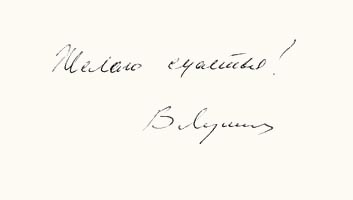 Желаю счастья!
В Лунин